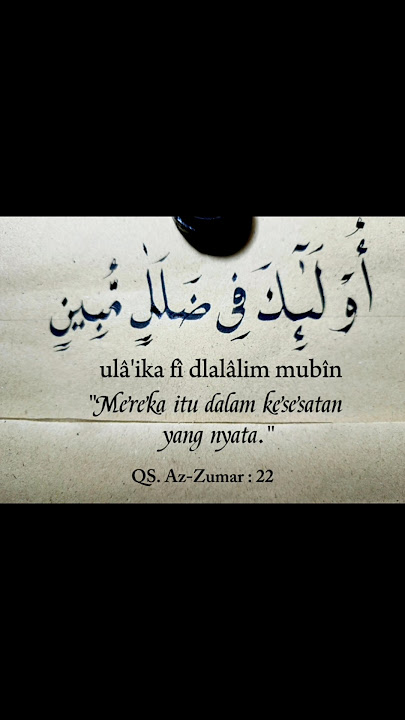 أُو۟لَـٰٓئِكَ فِى ضَلَـٰلٍ مُّبِينٍ
ulâ'ika fî dlalâlim mubîn
"Mereka itu dalam kesesatan
yang nyata."
QS. Az-Zumar : 22